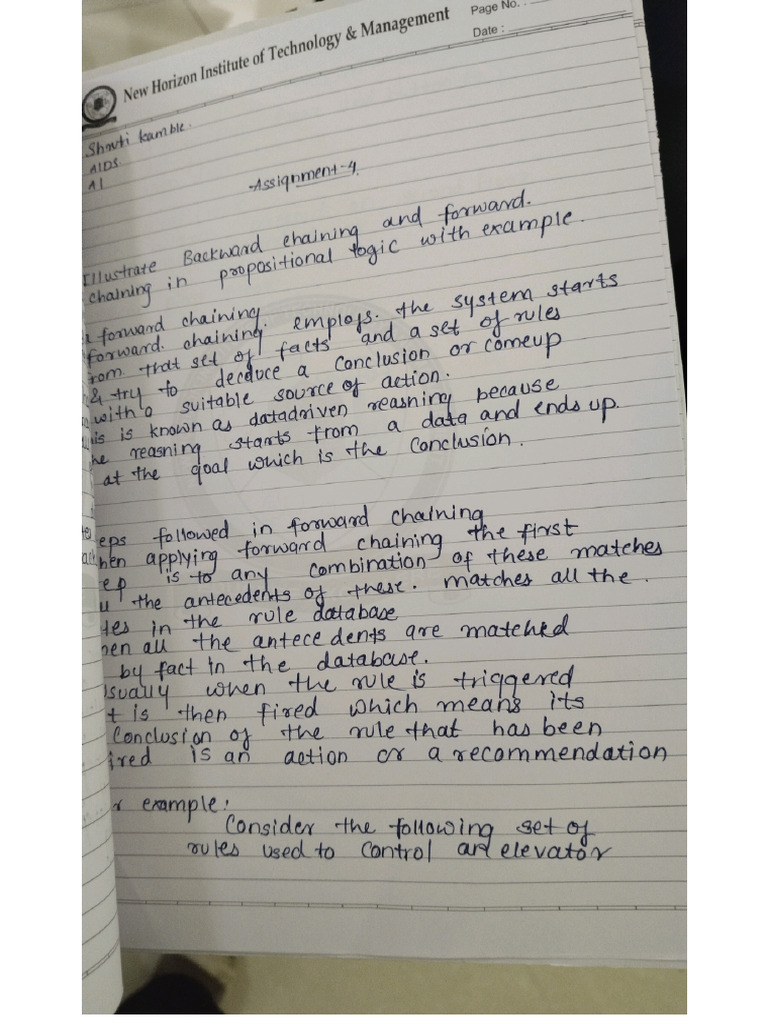 New Horizon Institute of Technology & Management
Page No. :
Date :
Shruti kamble.
AIDS
AI
Assignment-4.
Illustrate Backward chaining and forward.
chaining in propositional logic with example.
forward chaining
forward. chaining. employs. the system starts
rom that set of facts and a set of rules
& try to deceduce a conclusion or comeup
with a suitable source of action.
is is known as datadriven reasning because
he reasning starts from a data and ends up.
at the goal which is the conclusion.
eps followed in forward chaining
hen applying forward chaining the first
ep is to any combination of these matches
the antecedents of these. matches all the.
les in the rule database
hen all the antecedents are matched
by fact in the database.
sually when the rule is triggered
t is then fired which means its
Conclusion of the rule that has been
ired is an action or a recommendation
r example:
Consider the following set of
rules used to control an elevator